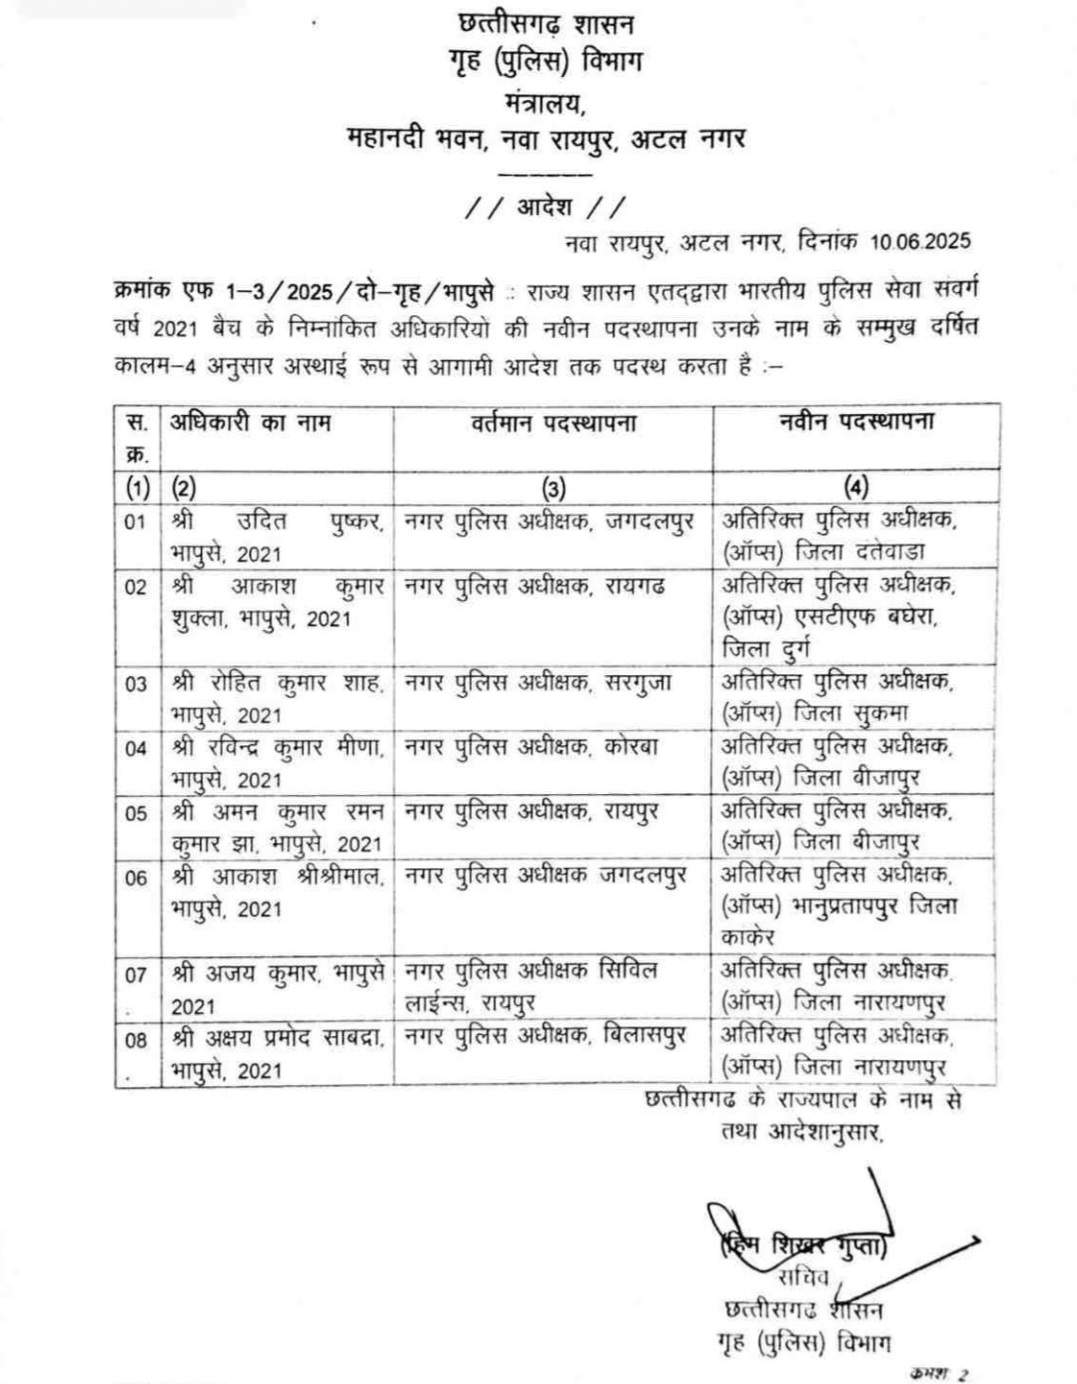 छत्तीसगढ़ शासन
गृह (पुलिस) विभाग
मंत्रालय,
महानदी भवन, नवा रायपुर, अटल नगर
// आदेश //
नवा रायपुर, अटल नगर, दिनांक 10.06.2025
क्रमांक एफ 1-3/2025/दो-गृह/भापुसे :: राज्य शासन एतद्द्वारा भारतीय पुलिस सेवा संवर्ग
वर्ष 2021 बैच के निम्नांकित अधिकारियों की नवीन पदस्थापना उनके नाम के सम्मुख दर्षित
कालम-4 अनुसार अस्थाई रूप से आगामी आदेश तक पदस्थ करता है :-
स. अधिकारी का नाम वर्तमान पदस्थापना नवीन पदस्थापना
क्र.
(1) (2) (3) (4)
01 श्री उदित पुष्कर, नगर पुलिस अधीक्षक, जगदलपुर अतिरिक्त पुलिस अधीक्षक,
भापुसे, 2021 (ऑप्स) जिला दंतेवाडा
02 श्री आकाश कुमार नगर पुलिस अधीक्षक, रायगढ अतिरिक्त पुलिस अधीक्षक,
शुक्ला, भापुसे, 2021 (ऑप्स) एसटीएफ बघेरा,
जिला दुर्ग
03 श्री रोहित कुमार शाह, नगर पुलिस अधीक्षक, सरगुजा अतिरिक्त पुलिस अधीक्षक,
भापुसे, 2021 (ऑप्स) जिला सुकमा
04 श्री रविन्द्र कुमार मीणा, नगर पुलिस अधीक्षक, कोरबा अतिरिक्त पुलिस अधीक्षक,
भापुसे, 2021 (ऑप्स) जिला बीजापुर
05 श्री अमन कुमार रमन नगर पुलिस अधीक्षक, रायपुर अतिरिक्त पुलिस अधीक्षक,
कुमार झा, भापुसे, 2021 (ऑप्स) जिला बीजापुर
06 श्री आकाश श्रीश्रीमाल, नगर पुलिस अधीक्षक जगदलपुर अतिरिक्त पुलिस अधीक्षक,
भापुसे, 2021 (ऑप्स) भानुप्रतापपुर जिला
कांकेर
07 श्री अजय कुमार, भापुसे नगर पुलिस अधीक्षक सिविल अतिरिक्त पुलिस अधीक्षक,
. 2021 लाईन्स, रायपुर (ऑप्स) जिला नारायणपुर
08 श्री अक्षय प्रमोद साबद्रा, नगर पुलिस अधीक्षक, बिलासपुर अतिरिक्त पुलिस अधीक्षक,
. भापुसे, 2021 (ऑप्स) जिला नारायणपुर
छत्तीसगढ के राज्यपाल के नाम से
तथा आदेशानुसार,
(हिम शिखर गुप्ता)
सचिव
छत्तीसगढ शासन
गृह (पुलिस) विभाग
क्रमशः 2